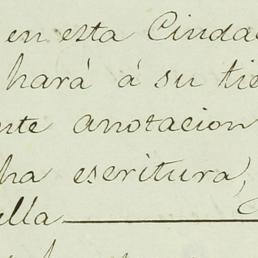 en esta Ciudad
hará á su tie
nte anotacion
ha escritura,
lla